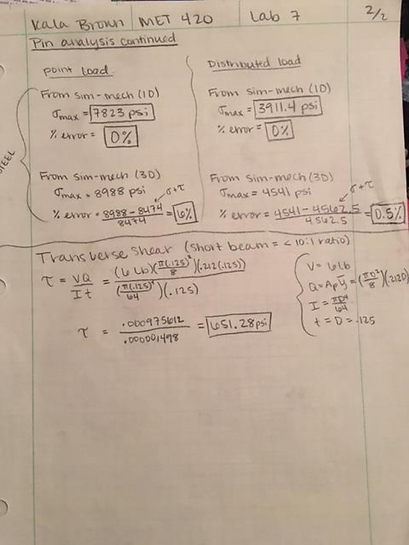 Kala Brown MET 420 Lab 7 2/2
Pin analysis continued
STEEL
point load
From sim-mech (1D)
σmax = 7823 psi
% error = 0%
From sim-mech (3D)
σmax = 8988 psi
σ+τ
% error = 8988 - 8474 / 8474 = 6%
Distributed load
From sim-mech (1D)
σmax = 3911.4 psi
% error = 0%
From sim-mech (3D)
σmax = 4541 psi
σ+τ
% error = 4541 - 4562.5 / 4562.5 = 0.5%
Transverse Shear (short beam = < 10:1 ratio)
τ = VQ / It = (6 lb)(π(.125)²/8)(.212(.125)) / (π(.125)⁴/64)(.125)
τ = .000975612 / .000001498 = 651.28 psi
V = 6 lb
Q = Apȳ = (πD²/8)(.212D)
I = πD⁴/64
t = D = .125